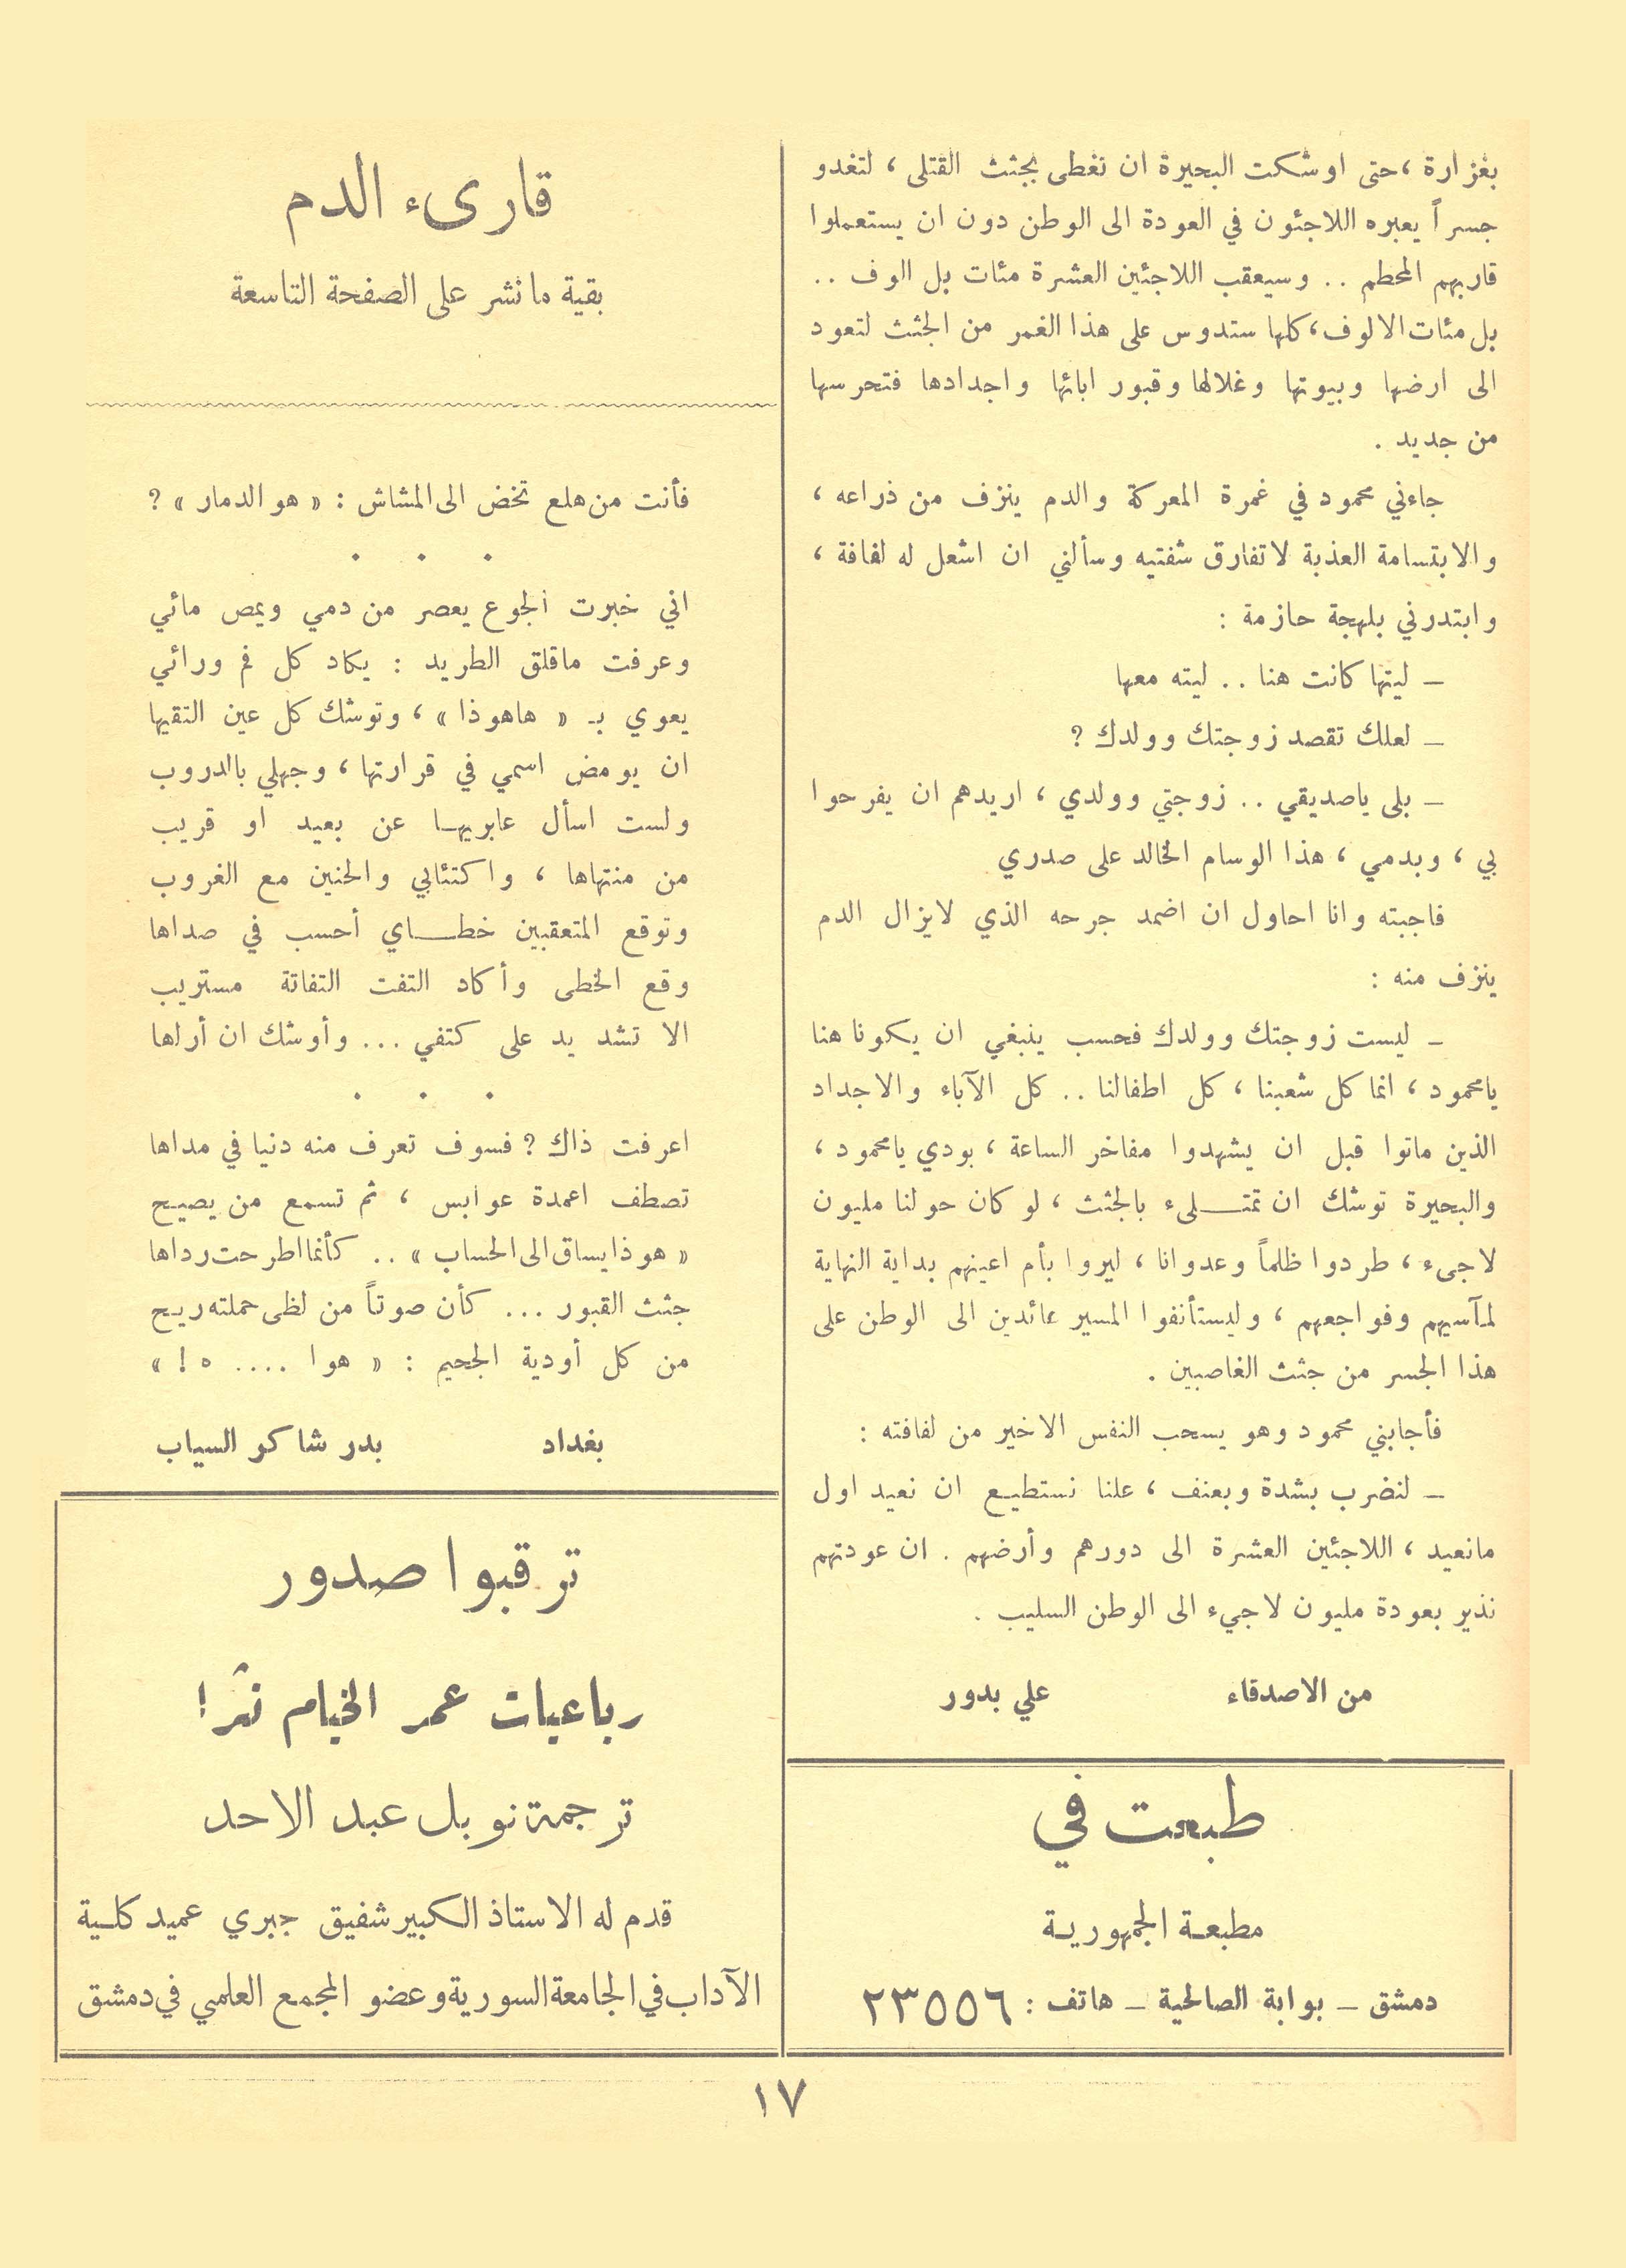 بغزارة ، حتى اوشكت البحيرة ان تغطى بجثث القتلى ، لتغدو
جسراً يعبره اللاجئون في العودة الى الوطن دون ان يستعملوا
قاربهم المحطم .. وسيعقب اللاجئين العشرة مئات بل الوف ..
بل مئات الالوف ، كلها ستدوس على هذا الغمر من الجثث لتعود
الى ارضها وبيوتها وغلالها وقبور ابائها واجدادها فتحرسها
من جديد .
جاءني محمود في غمرة المعركة والدم ينزف من ذراعه ،
والابتسامة العذبة لاتفارق شفتيه وسألني ان اشعل له لفافة ،
وابتدرني بلهجة حازمة :
— ليتها كانت هنا .. ليته معها
— لعلك تقصد زوجتك وولدك ؟
— بلى ياصديقي .. زوجتي وولدي ، اريدهم ان يفرحوا
بي ، وبدمي ، هذا الوسام الخالد على صدري
فاجبته وانا احاول ان اضمد جرحه الذي لايزال الدم
ينزف منه :
— ليست زوجتك وولدك فحسب ينبغي ان يكونا هنا
يامحمود ، انما كل شعبنا ، كل اطفالنا .. كل الآباء والاجداد
الذين ماتوا قبل ان يشهدوا مفاخر الساعة ، بودي يامحمود ،
والبحيرة توشك ان تمتــلىء بالجثث ، لو كان حولنا مليون
لاجىء ، طردوا ظلماً وعدوانا ، ليروا بأم اعينهم بداية النهاية
لمآسيهم وفواجعهم ، وليستأنفوا المسير عائدين الى الوطن على
هذا الجسر من جثث الغاصبين .
فأجابني محمود وهو يسحب النفس الاخير من لفافته :
— لنضرب بشدة وبعنف ، علنا نستطيـع ان نعيد اول
مانعيد ، اللاجئين العشرة الى دورهم وأرضهم . ان عودتهم
نذير بعودة مليون لاجيء الى الوطن السليب .
من الاصدقاء علي بدور
طبعت في
مطبعـة الجمهوريـة
دمشق — بوابة الصالحية — هاتف : ٢٣٥٥٦
قارىء الدم
بقية مانشر على الصفحة التاسعة
فأنت من هلع تخض الى المشاش : « هو الدمار » ؟
. . .
اني خبرت الجوع يعصر من دمي ويمص مائي
وعرفت ماقلق الطريد : يكاد كل فم ورائي
يعوي بـ « هاهوذا » ، وتوشك كل عين التقيها
ان يومض اسمي في قرارتها ، وجهلي بالدروب
ولست اسأل عابريهـا عن بعيد او قريب
من منتهاها ، واكتئابي والحنين مع الغروب
وتوقع المتعقبين خطـــاي أحسب في صداها
وقع الخطى وأكاد التفت التفاتة مستريب
الا تشد يد على كتفي ... وأوشك ان أراها
. . .
اعرفت ذاك ؟ فسوف تعرف منه دنيا في مداها
تصطف اعمدة عوابس ، ثم تسمع من يصيـح
« هوذا يساق الى الحساب » .. كأنما اطرحت رداها
جثث القبور ... كأن صوتاً من لظى حملته ريـح
من كل أودية الجحيم : « هوا .... ه ! »
بغداد بدر شاكر السياب
ترقبوا صدور
رباعيات عمر الخيام نثرا
ترجمة نوبل عبد الاحد
قدم له الاستاذ الكبير شفيق جبري عميد كلـية
الآداب في الجامعة السورية وعضو المجمع العلمي في دمشق
١٧